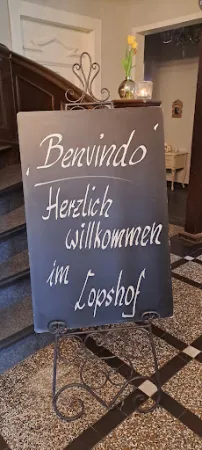 'Benvindo'
Herzlich
willkommen
im Lopshof